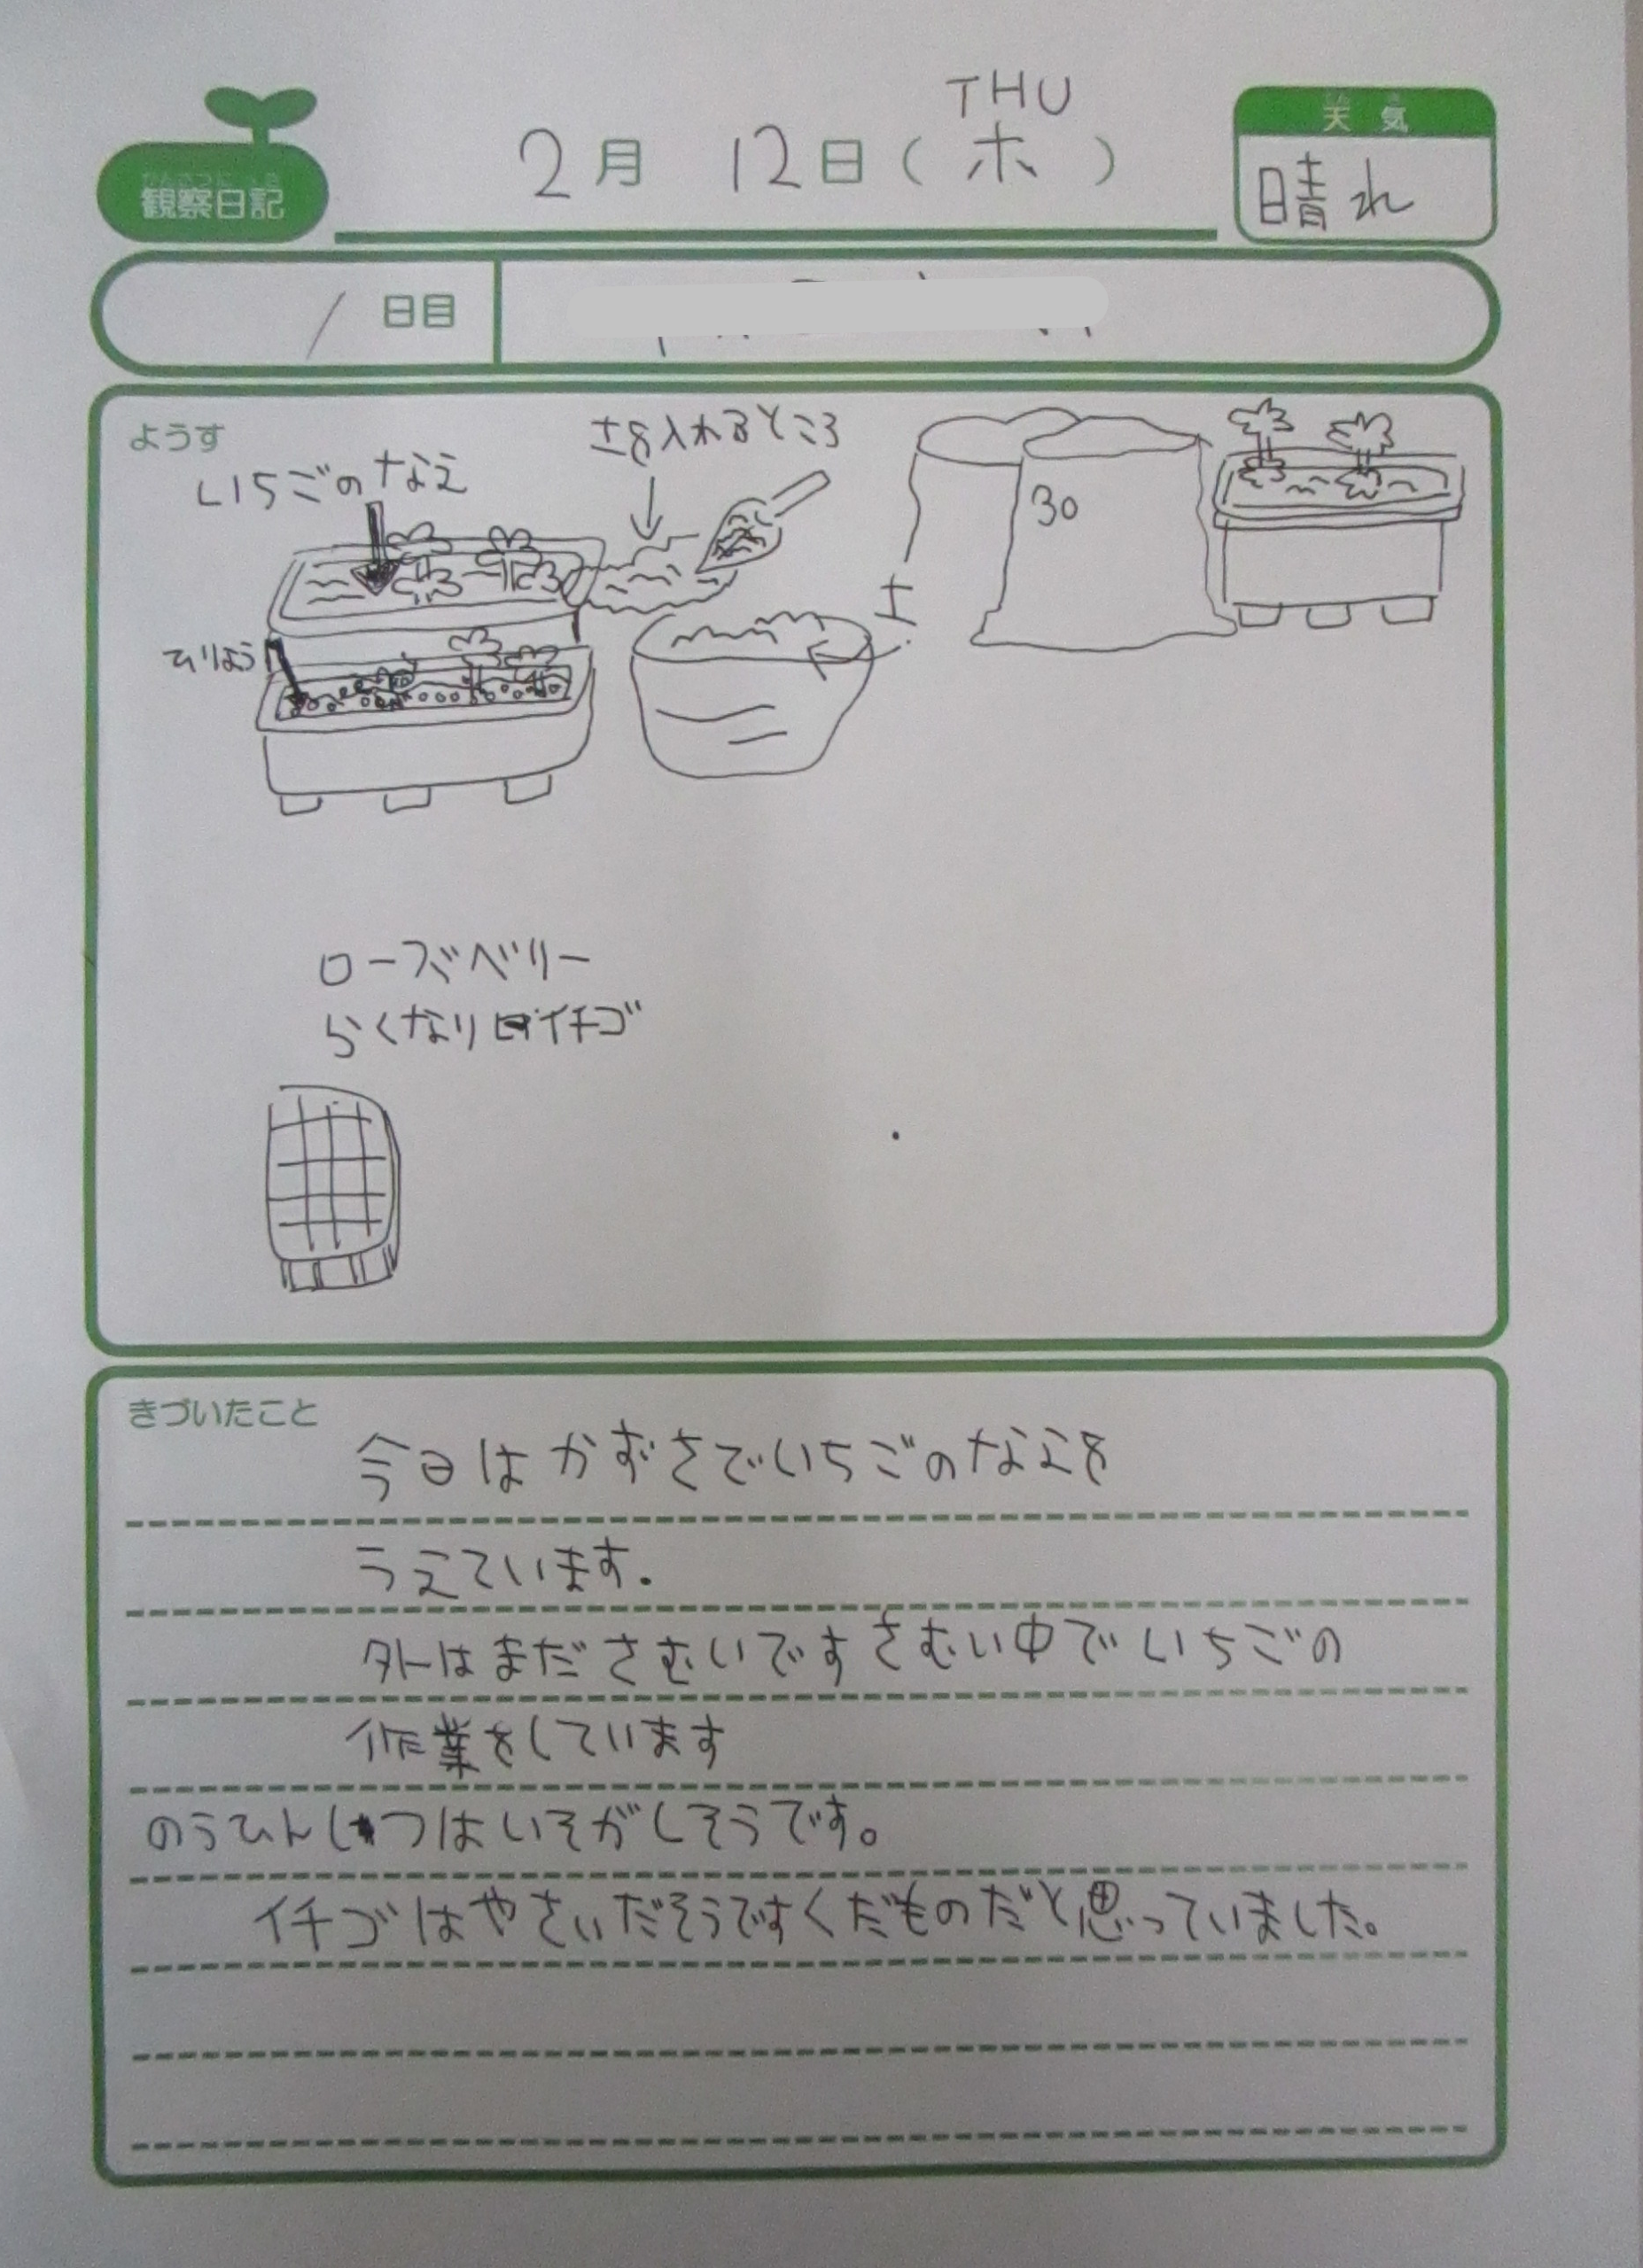 THU
観察日記 2月 12日(木) 天気
晴れ
1 日目
ようす
土を入れるところ
いちごのなえ
30
土
ひりょう
ローズベリー
らくなりイチゴ
きづいたこと
今日はかずさでいちごのなえを
うえています.
外はまださむいですさむい中でいちごの
作業をしています
のうひんしつはいそがしそうです。
イチゴはやさいだそうですくだものだと思っていました。